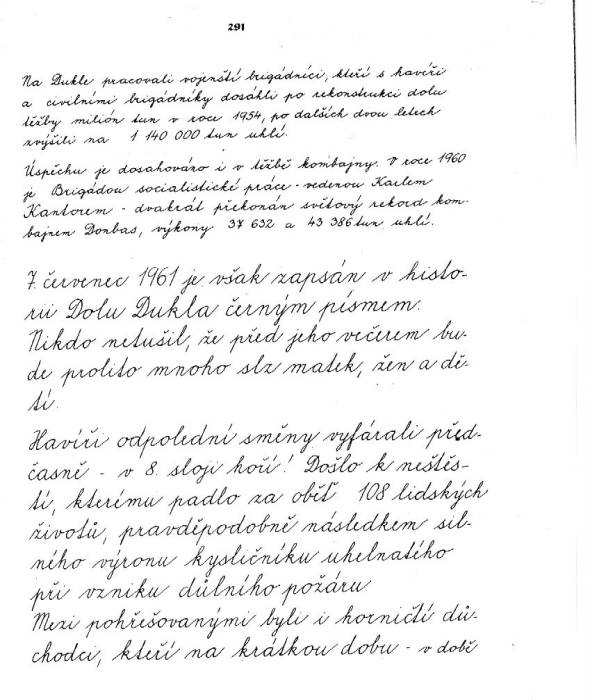 291
Na Dukle pracovali vojenští brigádníci, kteří s havíři
a civilními brigádníky dosáhli po rekonstrukci dolu
těžby milión tun v roce 1954, po dalších dvou letech
zvýšili na 1 140 000 tun uhlí.
Úspěchu je dosahováno i v těžbě kombajny. V roce 1960
je Brigádou socialistické práce - vedenou Karlem
Kantorem - dvakrát překonán světový rekord kom-
bajnem Donbas, výkony 37 632 a 43 386 tun uhlí.
7. červenec 1961 je však zapsán v histo-
rii Dolu Dukla černým písmem.
Nikdo netušil, že před jeho večerem bu-
de prolito mnoho slz matek, žen a dě-
tí.
Havíři odpolední směny vyfárali před-
časně - v 8. sloji hoří! Došlo k neštěs-
tí, kterému padlo za oběť 108 lidských
životů, pravděpodobně následkem sil-
ného výronu kysličníku uhelnatého
při vzniku důlního požáru
Mezi pohřešovanými byli i horničtí dů-
chodci, kteří na krátkou dobu - v době